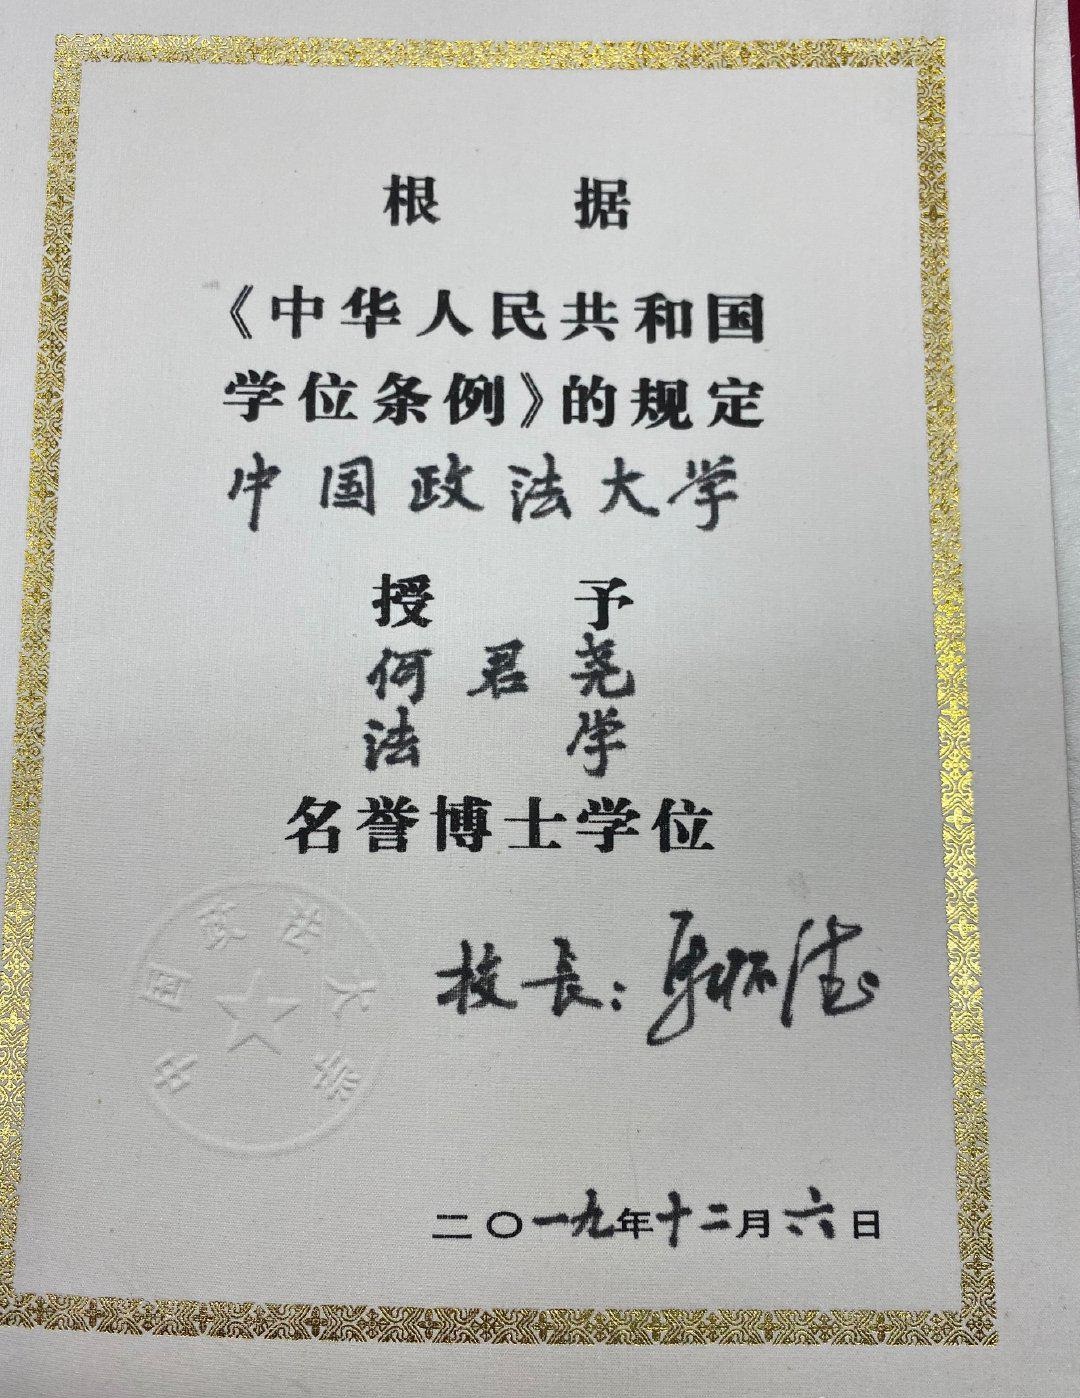 根 据
《中华人民共和国
学位条例》的规定
中国政法大学
授 予
何君尧
法 学
名誉博士学位
校長：马怀德
二〇一九年十二月六日
中国政法大学